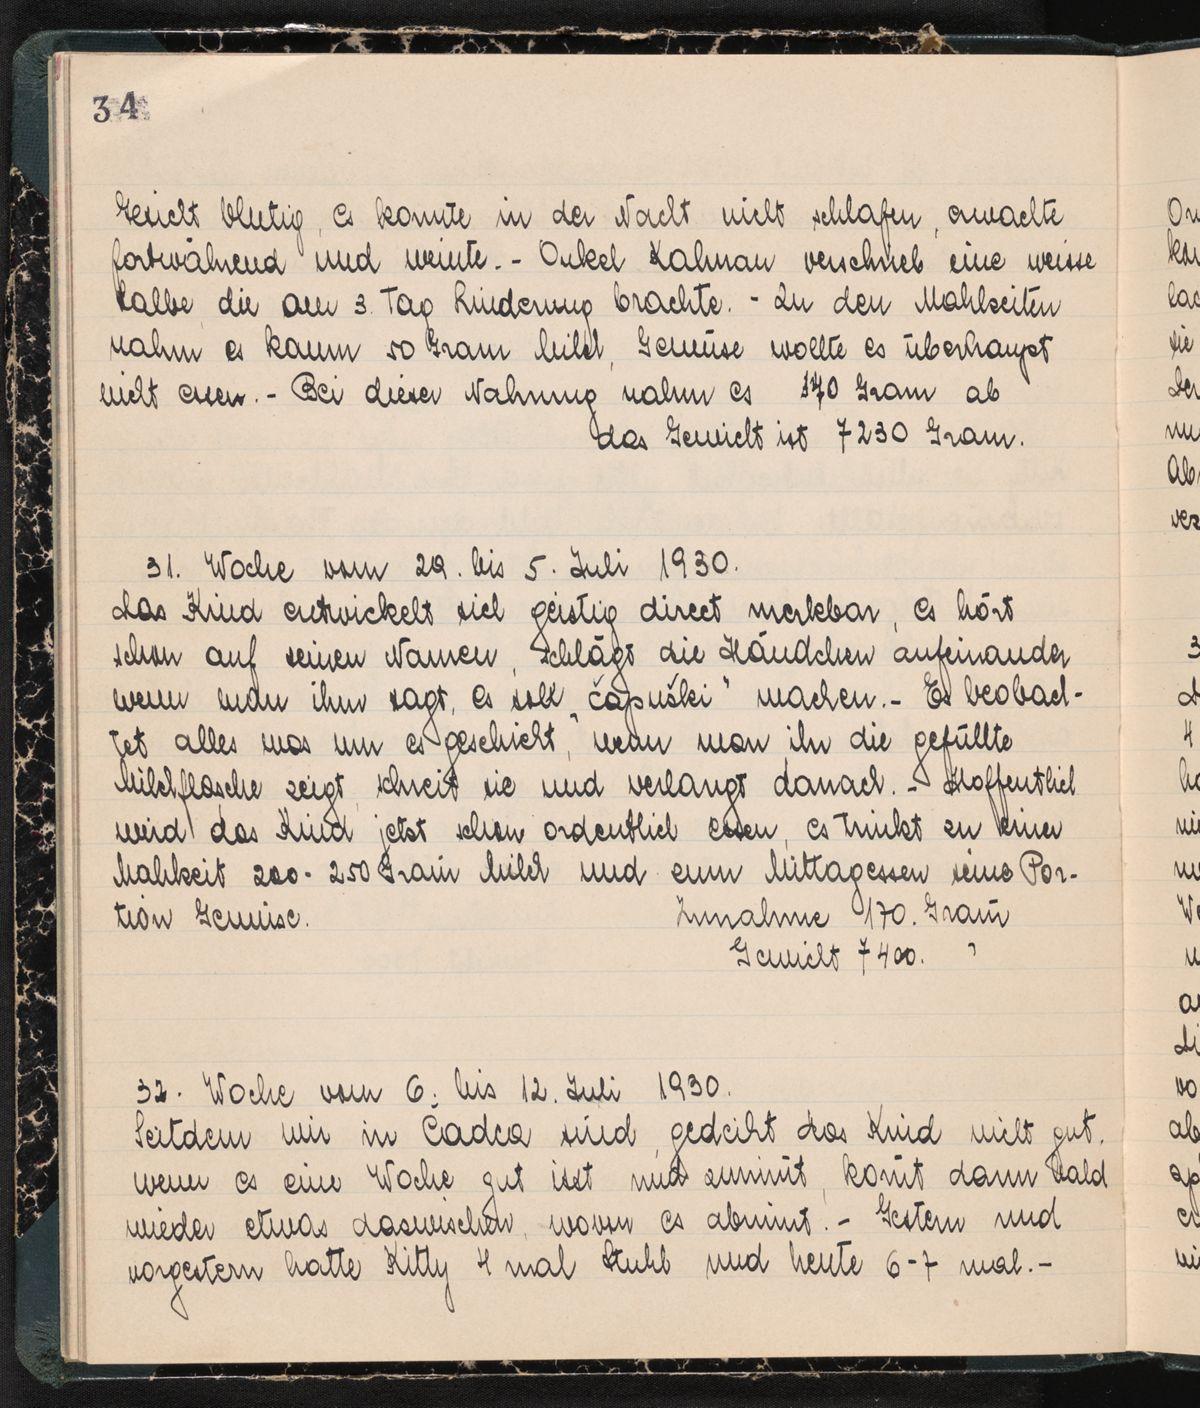 34
Gesicht blutig, es konnte in der Nacht nicht schlafen, erwachte
fortwährend und weinte. - Onkel Kalman verschrieb eine weisse
Salbe, die am 3. Tag Linderung brachte. - Zu den Mahlzeiten
nahm es kaum 50 Gram Milch, Gemüse wollte es überhaupt
nicht essen. - Bei dieser Nahrung nahm es 170 Gram ab
das Gewicht ist 7230 Gram.
31. Woche vom 29. bis 5. Juli 1930.
Das Kind entwickelt sich geistig direct merkbar, es hört
schon auf seinen Namen, schlägt die Händchen aufeinander
wenn man ihm sagt, es soll „čapuški" machen. - Es beobach-
tet alles was um es geschieht, wenn man ihr die gefüllte
Milchflasche zeigt, schreit sie und verlangt danach. - Hoffentlich
wird das Kind jetzt schon ordentlich essen, es trinkt zu einer
Mahlzeit 200-250 Gram̄ Milch und zum Mittagessen seine Por-
tion Gemüse. Zunahme 170. Gram̄
Gewicht 7400. "
32. Woche vom 6. bis 12. Juli 1930.
Seitdem wir in Čadca sind, gedeiht das Kind nicht gut.
wenn es eine Woche gut isst und zunim̄t, kom̄t dann bald
wieder etwas dazwischen, wovon es abnim̄t. - Gestern und
vorgestern hatte Kitty 4 mal Stuhl und heute 6-7 mal. -